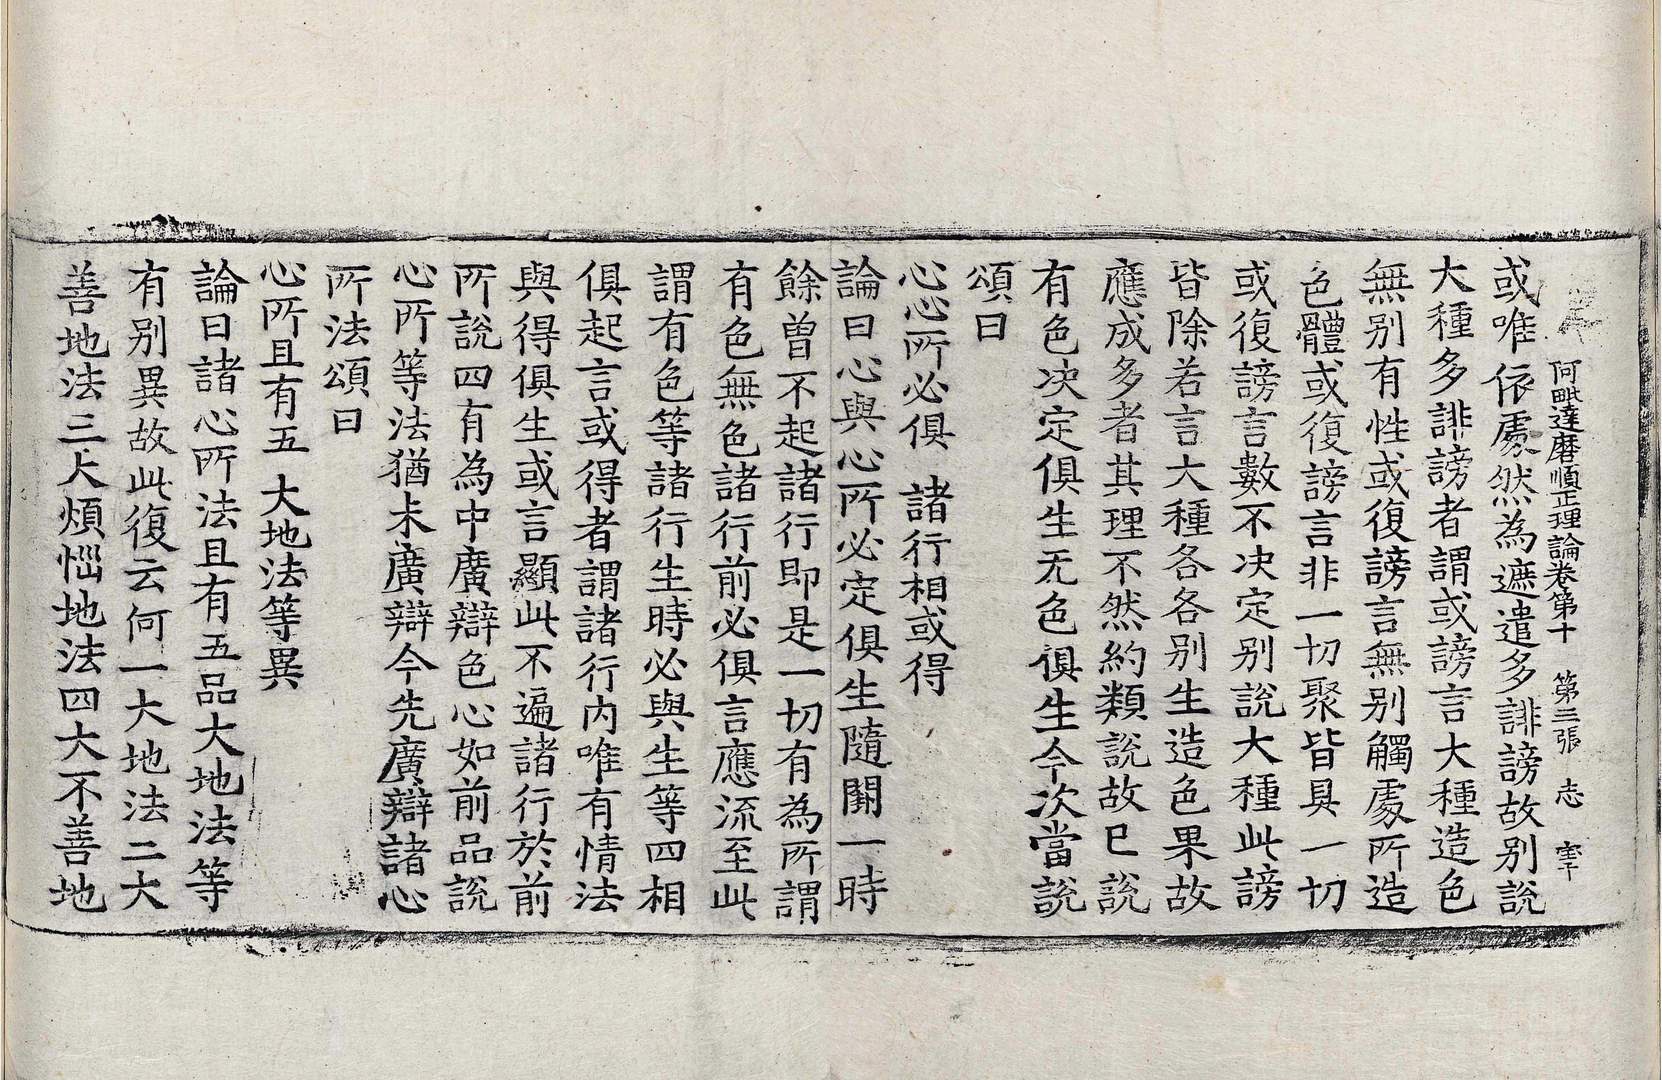 阿毗達磨順正理論卷第十 第三張 志
或唯依處然為遮遣多誹謗故别說
大種多誹謗者謂或謗言大種造色
無别有性或復謗言無别觸處所造
色體或復謗言非一切聚皆具一切
或復謗言數不决定别說大種此謗
皆除若言大種各各别生造色果故
應成多者其理不然約類說故已說
有色决定俱生无色俱生今次當說
頌曰
心心所必俱 諸行相或得
論曰心與心所必定俱生隨闕一時
餘曾不起諸行即是一切有為所謂
有色無色諸行前必俱言應流至此
謂有色等諸行生時必與生等四相
俱起言或得者謂諸行内唯有情法
與得俱生或言顯此不遍諸行於前
所說四有為中廣辯色心如前品說
心所等法猶未廣辯今先廣辯諸心
所法頌曰
心所且有五 大地法等異
論曰諸心所法且有五品大地法等
有别異故此復云何一大地法二大
善地法三大煩惱地法四大不善地